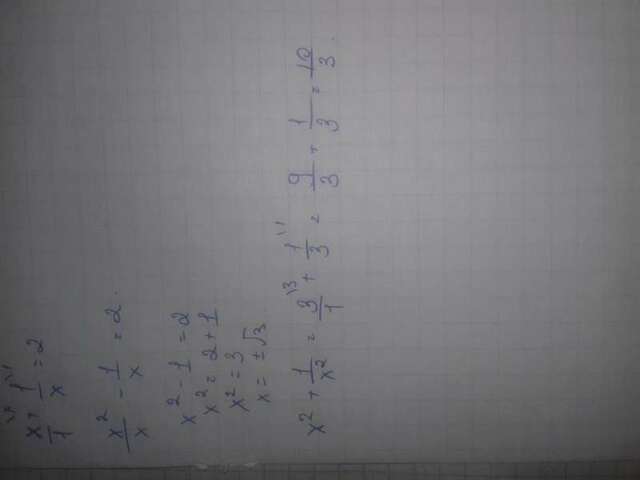 x/1 + 1/x = 2
x²/x - 1/x = 2.
x² - 1 = 2
x² = 2 + 1
x² = 3
x = ±√3
x² + 1/x² = 3\3/1 + 1\1/3 = 9/3 + 1/3 = 10/3.